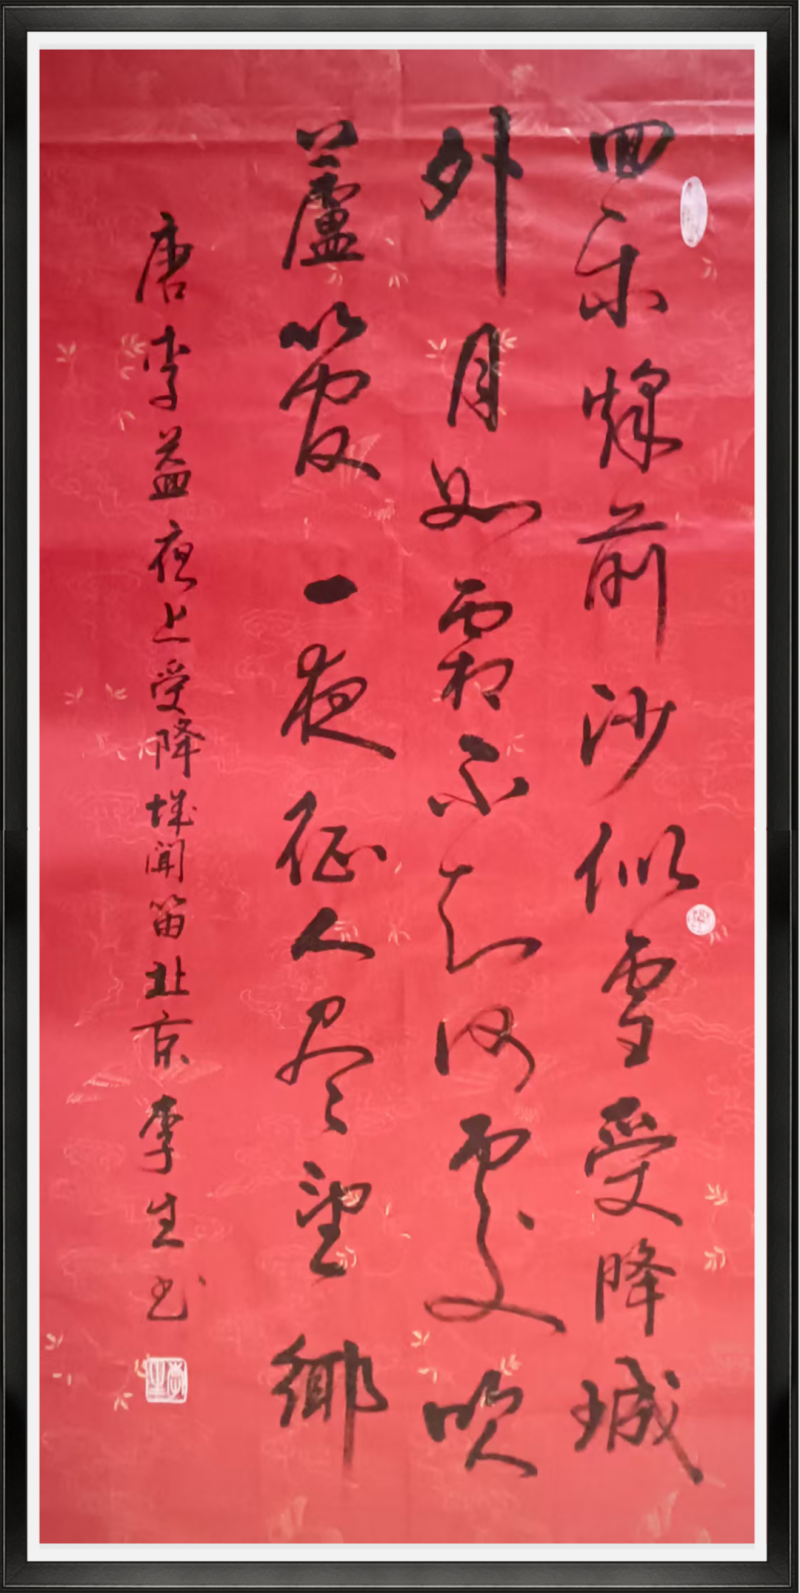 回乐烽前沙似雪受降城
外月如霜不知何處吹
蘆管一夜征人尽望鄉
唐李益夜上受降城聞笛北京李生书
李生